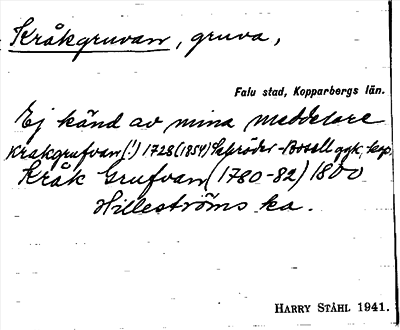 Kråkgruvan, gruva,
Falu stad, Kopparbergs län.
Ej känd av mina meddelare
Kråkgrufvan (!) 1728 (1854) Schröder-Bosell ggk. kop.
Kråk Grufvan (1780-82) 1800
Hilleströms ka.
HARRY STÅHL 1941.